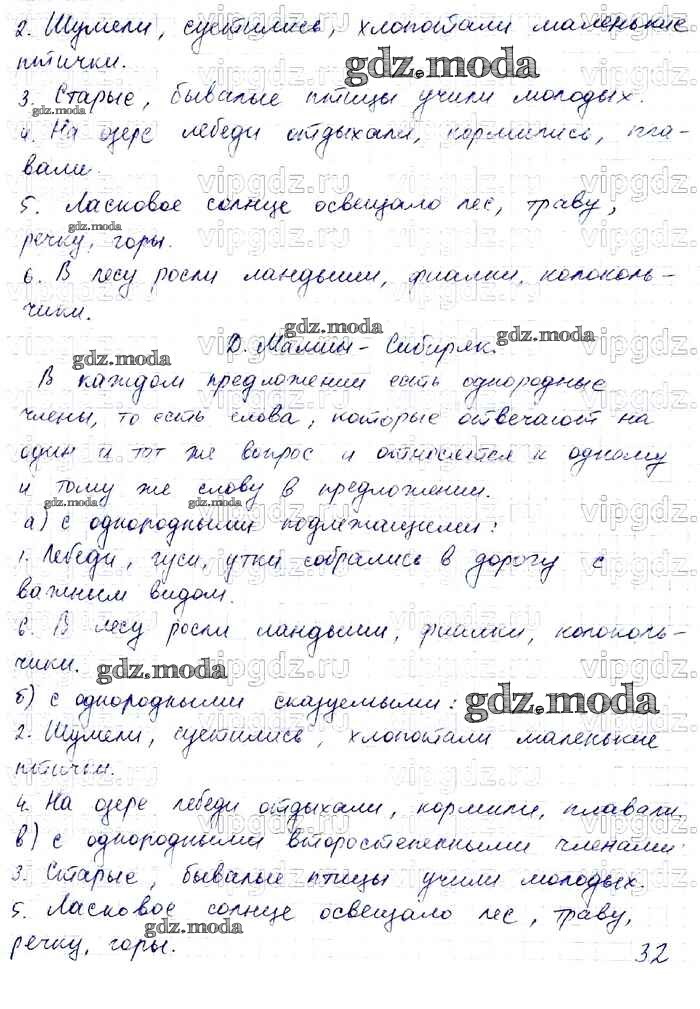 2. Шумели, суетились, хлопотали маленькие
птички.
3. Старые, бывалые птицы учили молодых.
4. На озере лебеди отдыхали, кормились, пла-
вали.
5. Ласковое солнце освещало лес, траву,
речку, горы.
6. В лесу росли ландыши, фиалки, колоколь-
чики.
Д. Мамин-Сибиряк.
В каждом предложении есть однородные
члены, то есть слова, которые отвечают на
один и тот же вопрос и относятся к одному
и тому же слову в предложении.
а) с однородными подлежащими:
1. Лебеди, гуси, утки собрались в дорогу с
важным видом.
6. В лесу росли ландыши, фиалки, колоколь-
чики.
б) с однородными сказуемыми:
2. Шумели, суетились, хлопотали маленькие
птички.
4. На озере лебеди отдыхали, кормили, плавали.
в) с однородными второстепенными членами:
3. Старые, бывалые птицы учили молодых.
5. Ласковое солнце освещало лес, траву,
речку, горы.
32
gdz.moda
vipgdz.ru